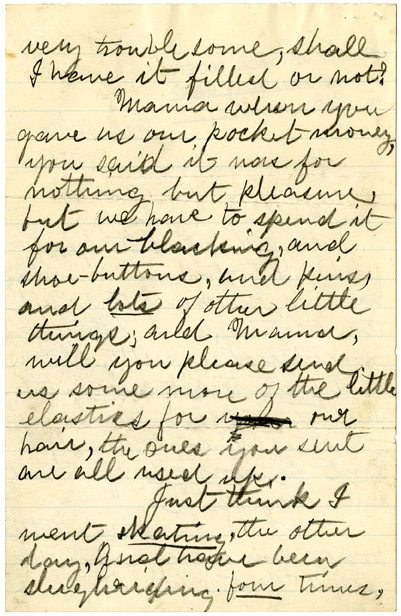 very trouble some, shall
I have it filled or not?
Mama when you
gave us our pocket-money,
you said it was for
nothing but pleasure,
but we have to spend it
for our blacking, and
shoe-buttons, and pins,
and lots of other little
things, and Mama,
will you please send
us some more of the little
elastics for our
hair, the ones you sent
are all used up.
Just think I
went skating, the other
day, and have been
sleighriding four times,